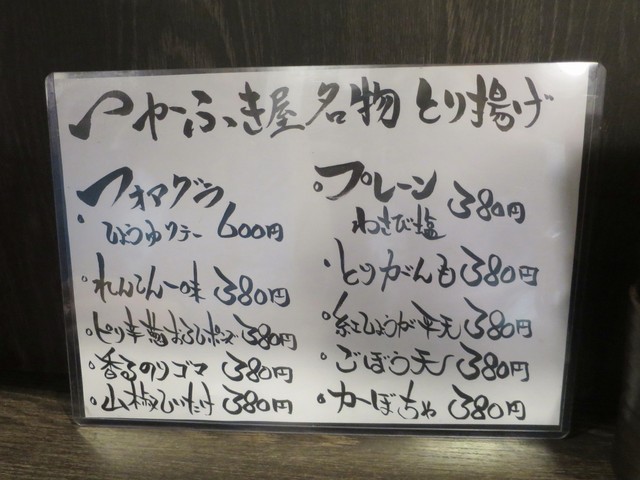 名物 とり揚げ
・プレーン 380円
わさび塩
・とりがんも 380円
・紅しょうが平天 380円
・ごぼう天 380円
・かぼちゃ 380円
・フォアグラ
しょうゆソテー 600円
・れんこん一味 380円
・ピリ辛葱おろしポンズ 380円
・香るのりゴマ 380円
・山椒しいたけ 380円